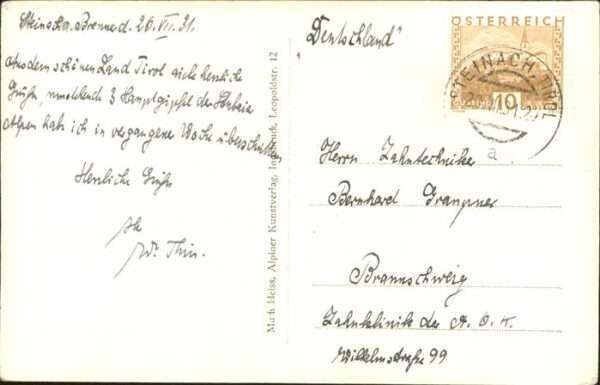 Steinach a. Brenner d. 26.VII.31.
Aus dem schönen Land Tirol viele herzliche
Grüße, 3 Hauptgipfel der Stubaier
Alpen hab ich in vergangener Woche überschritten
Herzliche Grüße
Math Heiss, Alpiner Kunstverlag, Innsbruck, Leopoldstr. 12
"Deutschland"
ÖSTERREICH
10
STEINACH, TIROL
a
Herrn Zahntechniker
Bernhard
Braunschweig
Zahnklinik der A. O. K.
Wilhelmstraße 99